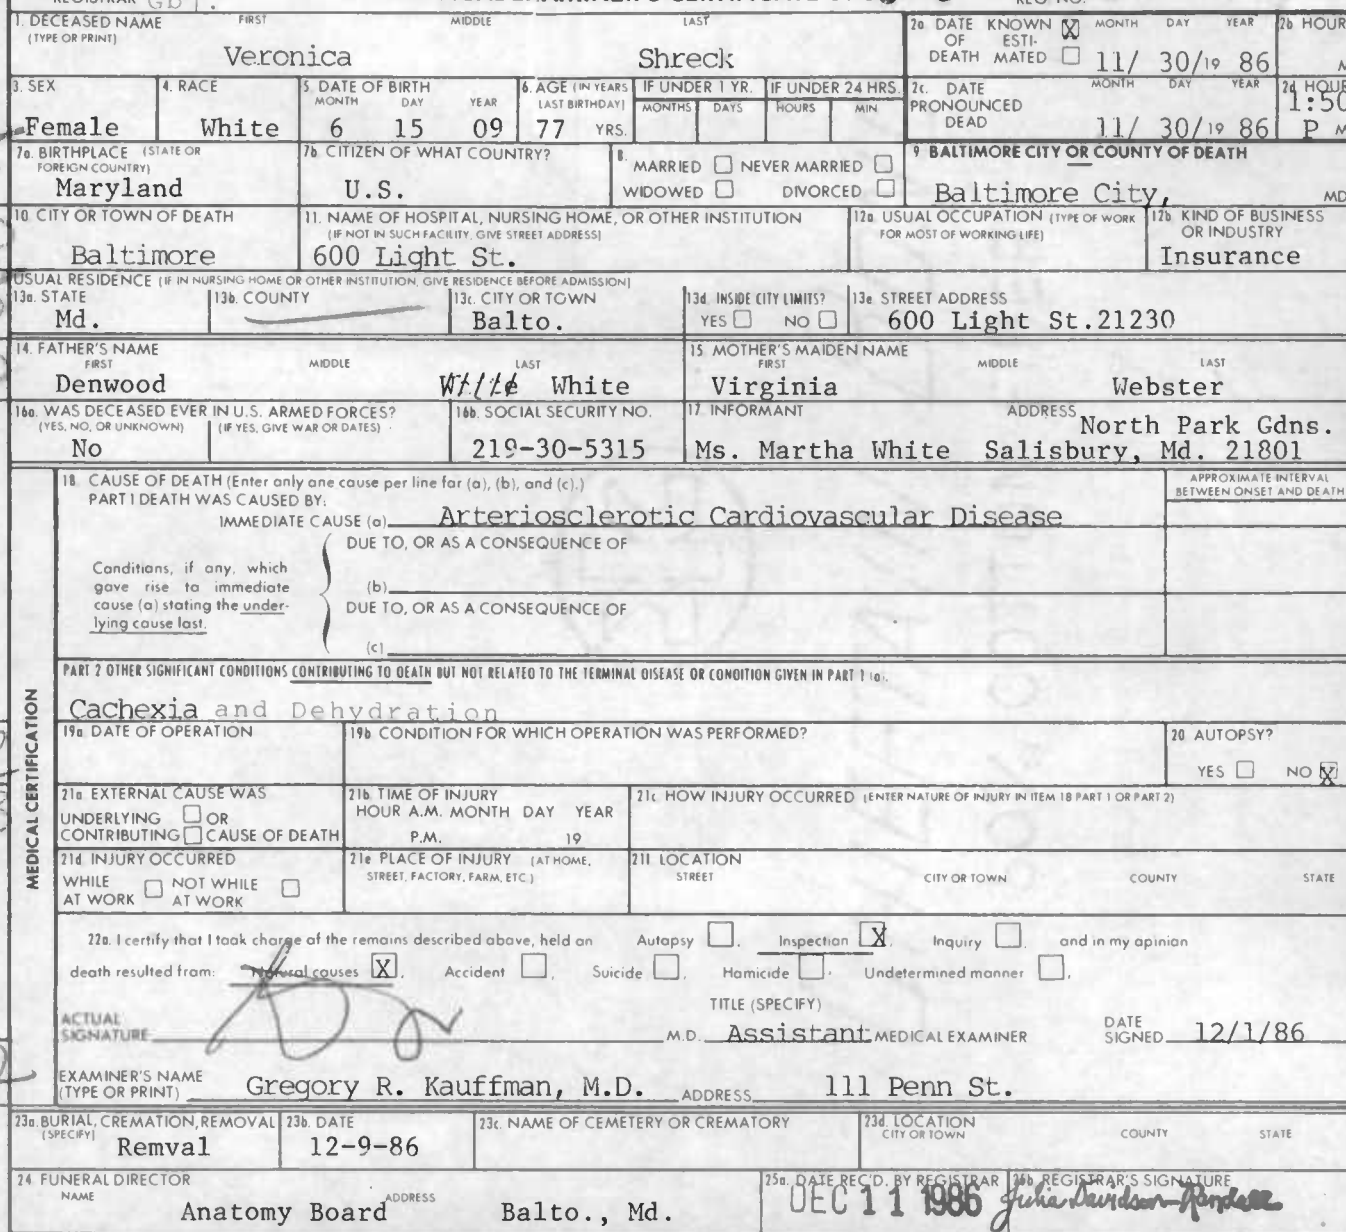 REGISTRAR GDT.
1. DECEASED NAME FIRST MIDDLE LAST
(TYPE OR PRINT)
Veronica Shreck
2a DATE KNOWN X MONTH DAY YEAR
OF ESTI-
DEATH MATED 11/ 30/19 86
2b HOUR
M
3. SEX
Female
4. RACE
White
5. DATE OF BIRTH
MONTH DAY YEAR
6 15 09
6. AGE (IN YEARS
LAST BIRTHDAY)
77 YRS.
IF UNDER 1 YR.
MONTHS DAYS
IF UNDER 24 HRS.
HOURS MIN
2c. DATE MONTH DAY YEAR
PRONOUNCED
DEAD 11/ 30/19 86
2d HOUR
1:50
P M
7a. BIRTHPLACE (STATE OR
FOREIGN COUNTRY)
Maryland
7b. CITIZEN OF WHAT COUNTRY?
U.S.
8. MARRIED NEVER MARRIED
WIDOWED DIVORCED
9 BALTIMORE CITY OR COUNTY OF DEATH
Baltimore City, MD
10 CITY OR TOWN OF DEATH
Baltimore
11. NAME OF HOSPITAL, NURSING HOME, OR OTHER INSTITUTION
(IF NOT IN SUCH FACILITY, GIVE STREET ADDRESS)
600 Light St.
12a USUAL OCCUPATION (TYPE OF WORK
FOR MOST OF WORKING LIFE)
12b. KIND OF BUSINESS
OR INDUSTRY
Insurance
USUAL RESIDENCE (IF IN NURSING HOME OR OTHER INSTITUTION, GIVE RESIDENCE BEFORE ADMISSION)
13a. STATE
Md.
13b. COUNTY
13c. CITY OR TOWN
Balto.
13d INSIDE CITY LIMITS?
YES NO
13e STREET ADDRESS
600 Light St.21230
14. FATHER'S NAME
FIRST MIDDLE LAST
Denwood White White
15 MOTHER'S MAIDEN NAME
FIRST MIDDLE LAST
Virginia Webster
16a. WAS DECEASED EVER IN U.S. ARMED FORCES?
(YES, NO, OR UNKNOWN) (IF YES, GIVE WAR OR DATES)
No
16b. SOCIAL SECURITY NO.
219-30-5315
17 INFORMANT ADDRESS
North Park Gdns.
Ms. Martha White Salisbury, Md. 21801
18 CAUSE OF DEATH (Enter only one cause per line for (a), (b), and (c).)
PART 1 DEATH WAS CAUSED BY:
IMMEDIATE CAUSE (a) Arteriosclerotic Cardiovascular Disease
APPROXIMATE INTERVAL
BETWEEN ONSET AND DEATH
DUE TO, OR AS A CONSEQUENCE OF
Conditions, if any, which
gave rise to immediate
cause (a) stating the under-
lying cause last.
(b)
DUE TO, OR AS A CONSEQUENCE OF
(c)
PART 2 OTHER SIGNIFICANT CONDITIONS CONTRIBUTING TO DEATH BUT NOT RELATED TO THE TERMINAL DISEASE OR CONDITION GIVEN IN PART 1 (a).
Cachexia and Dehydration
MEDICAL CERTIFICATION
19a. DATE OF OPERATION
19b CONDITION FOR WHICH OPERATION WAS PERFORMED?
20 AUTOPSY?
YES NO X
21a EXTERNAL CAUSE WAS
UNDERLYING OR
CONTRIBUTING CAUSE OF DEATH
21b TIME OF INJURY
HOUR A.M. MONTH DAY YEAR
P.M. 19
21c HOW INJURY OCCURRED (ENTER NATURE OF INJURY IN ITEM 18 PART 1 OR PART 2)
21d INJURY OCCURRED
WHILE NOT WHILE
AT WORK AT WORK
21e PLACE OF INJURY (AT HOME,
STREET, FACTORY, FARM, ETC.)
21f LOCATION
STREET CITY OR TOWN COUNTY STATE
22a. I certify that I took charge of the remains described above, held an Autopsy , Inspection X, Inquiry , and in my opinion
death resulted from: Natural causes X, Accident , Suicide , Homicide , Undetermined manner ,
TITLE (SPECIFY)
ACTUAL
SIGNATURE M.D. Assistant MEDICAL EXAMINER
DATE
SIGNED 12/1/86
EXAMINER'S NAME
(TYPE OR PRINT) Gregory R. Kauffman, M.D. ADDRESS 111 Penn St.
23a. BURIAL, CREMATION, REMOVAL
(SPECIFY)
Remval
23b. DATE
12-9-86
23c. NAME OF CEMETERY OR CREMATORY
23d. LOCATION
CITY OR TOWN COUNTY STATE
24 FUNERAL DIRECTOR
NAME ADDRESS
Anatomy Board Balto., Md.
25a. DATE REC'D. BY REGISTRAR
DEC 11 1986
25b REGISTRAR'S SIGNATURE
Julia Davidson-Randall